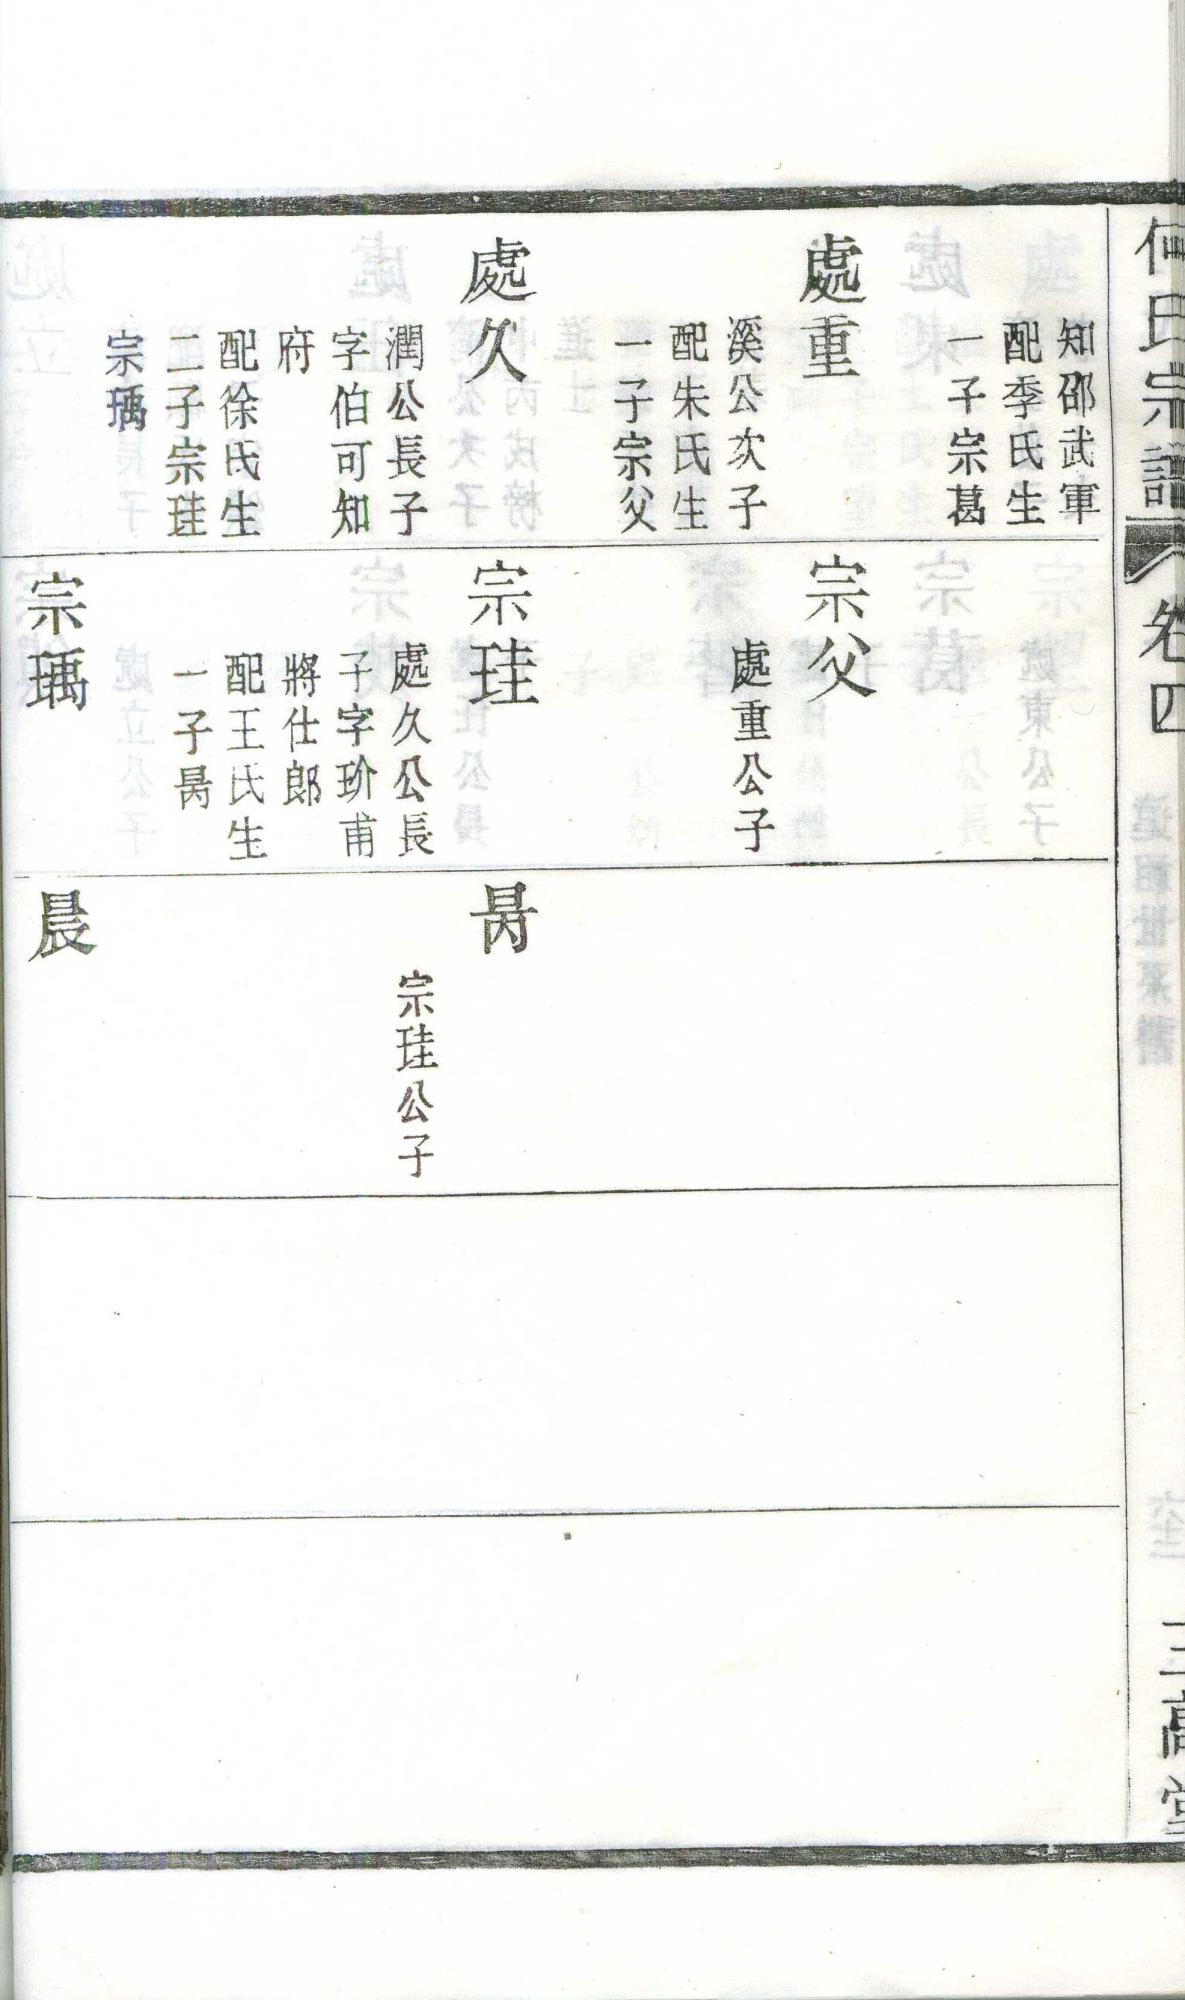 何氏宗譜
卷四
三高堂
知邵武軍
配季氏生
一子宗葛
處重
溪公次子
配朱氏生
一子宗父
處久
潤公長子
字伯可知
府
配徐氏生
二子宗珪
宗瑀
宗父
處重公子
宗珪
處久公長
子字玠甫
將仕郎
配王氏生
一子昺
宗瑀
昺
宗珪公子
晨